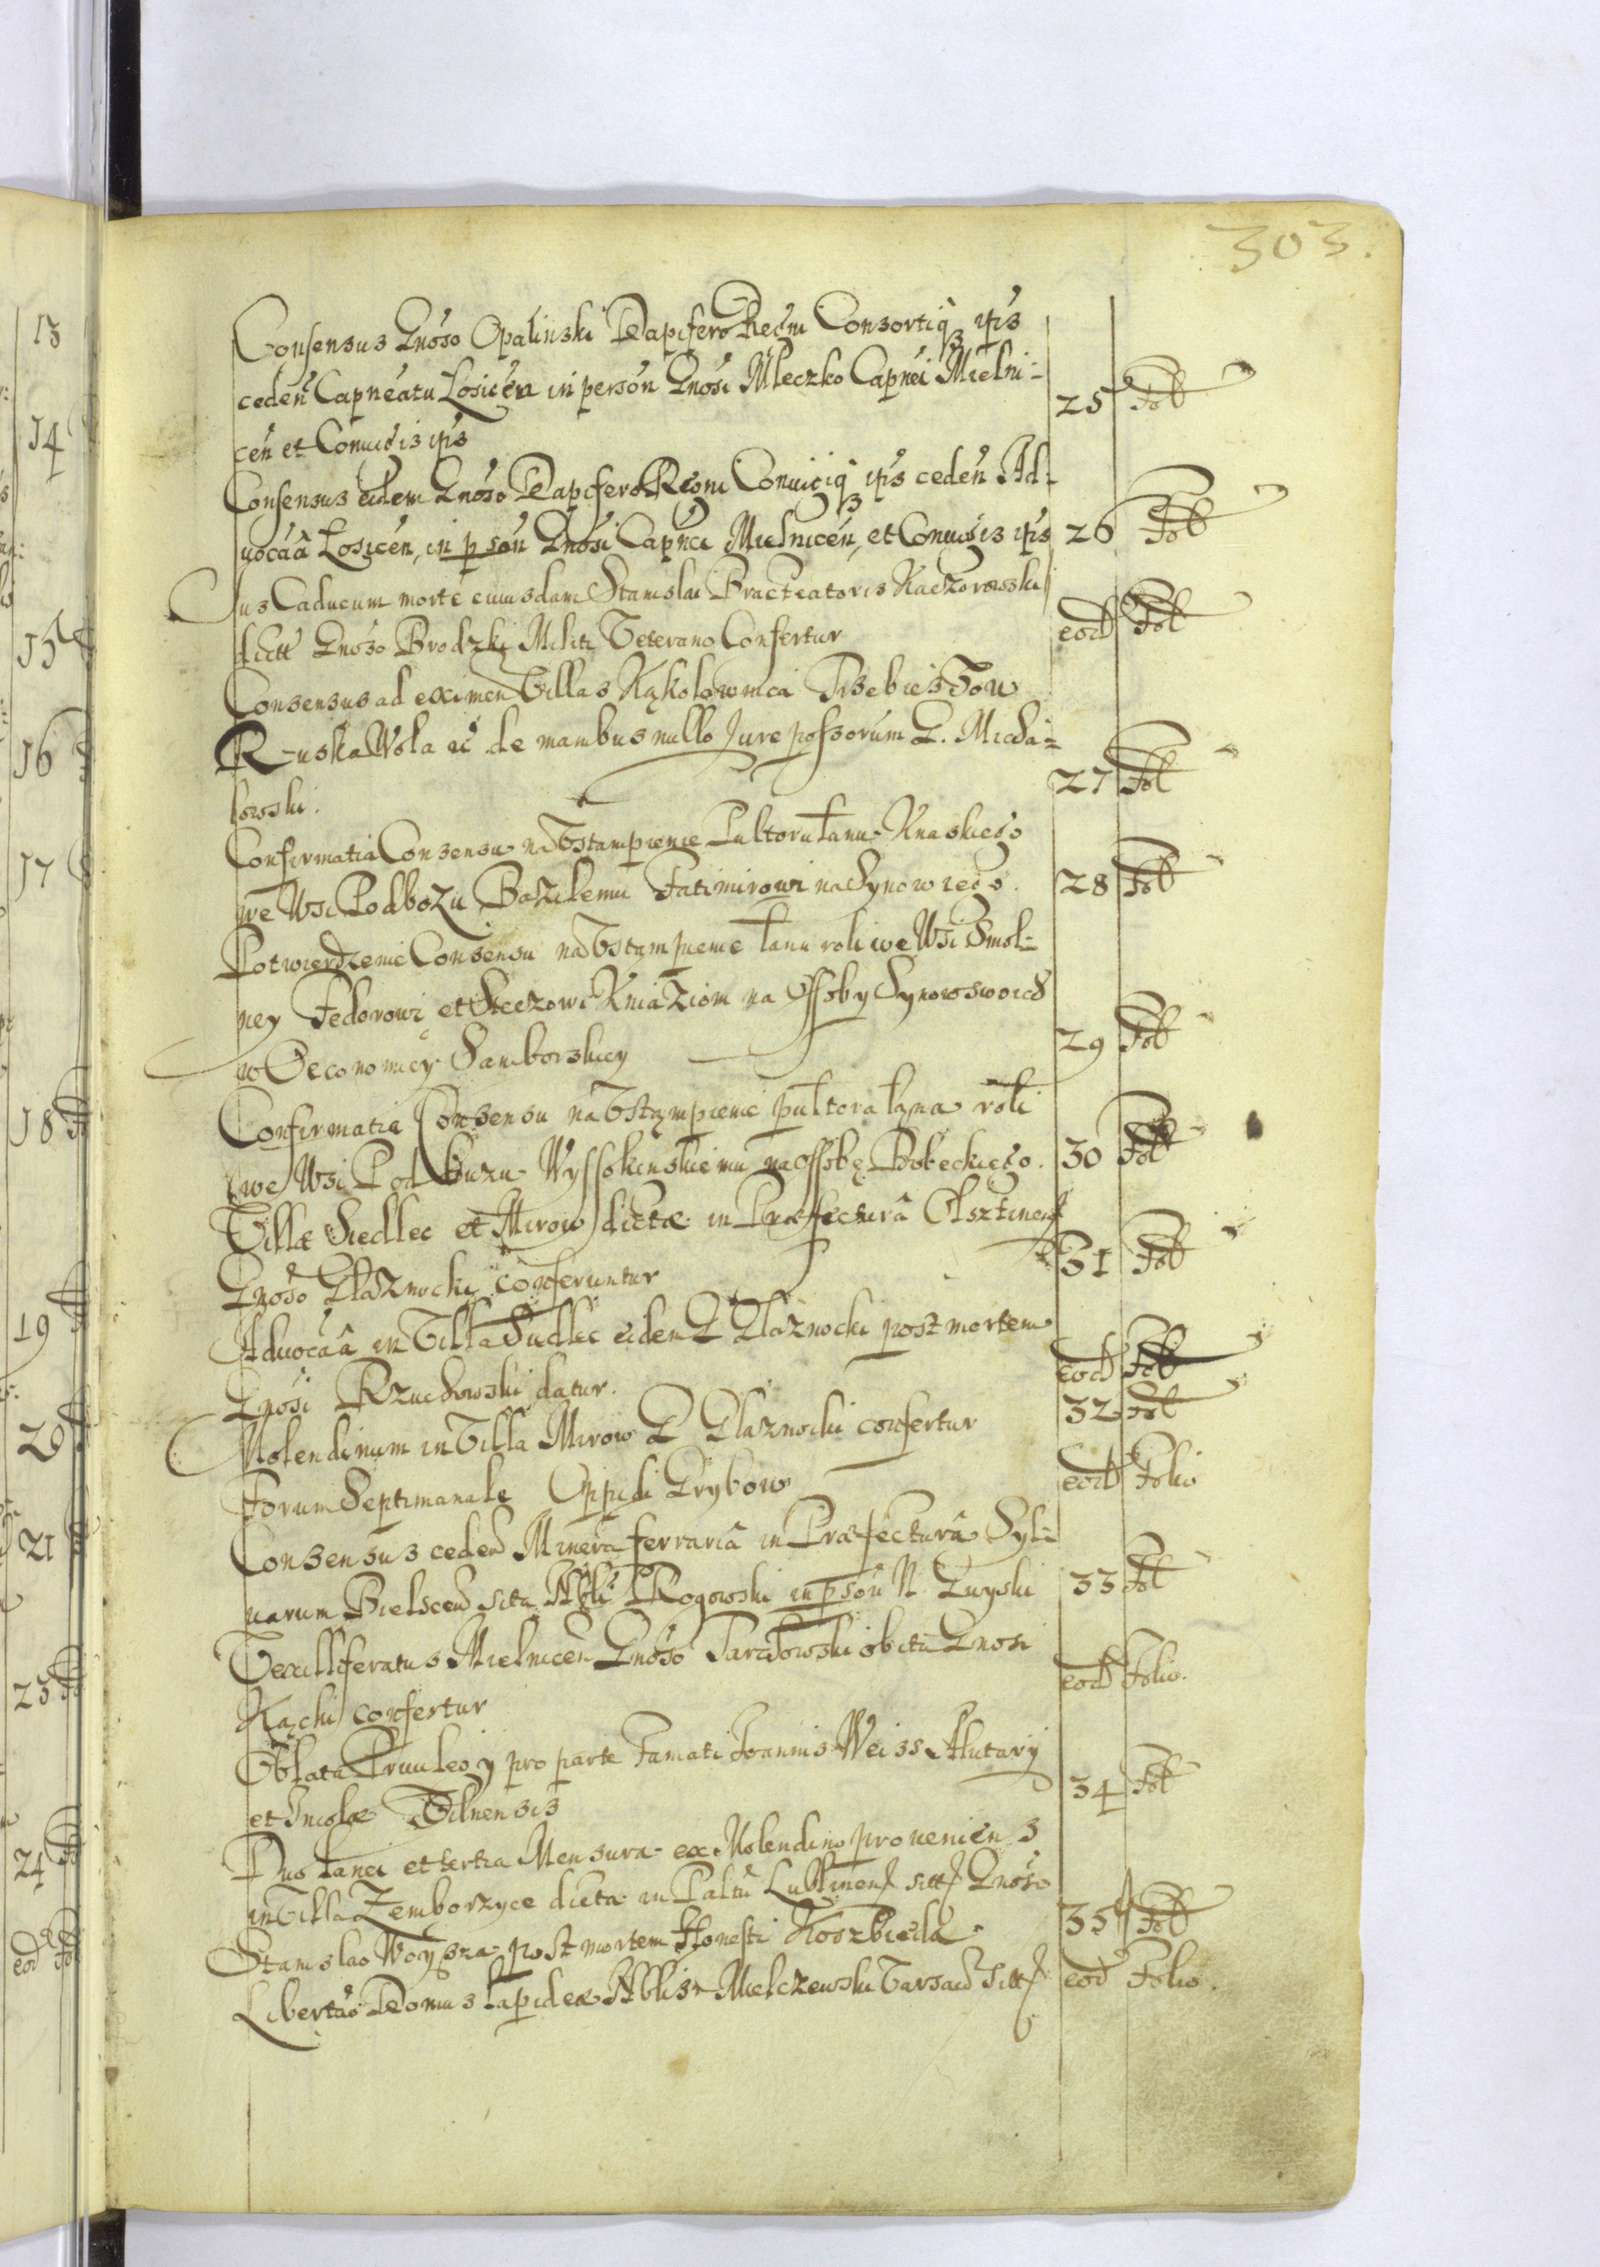 303.
Consensus Gnoso Opalinski Dapifero Regni Consortiq3 ipis
ceden Capneatu Losicen in person Gnosi Mleczko Capnei Mielni-
cen et Coniugis ipis 25 Fol
Consensus eidem Gnoso Dapifero Regni Coniugiq3 ipis ceden Ad-
uocaa Losicen, in pson Gnosi Capnei Mielnicen, et Coniugis ipis 26 Fol
Ius Caducum morte cuiusdam Stanislai Bracteatoris Kaczorowski
dict Gnoso Brodzki Militi Veterano Confertur eod Fol
Consensus ad eximen Villas Kąkolownica Przebiestow
Ruska Wola ec de manibus nullo Jure possorum G. Micha-
lowski. 27 Fol
Confirmatia Consensu na Vstampienie Pultoru Lanu Knaskiego
we Wsi Podbozu Bazilemu Fatimirowi na Synow iego. 28 Fol
Potwierdzenie Consensu na Vstąmpienie Lanu roli we Wsi Smol-
ney Fedorowi et Steczowi Kniaziom na Ossoby Synow swoich
w Oeconomiey Samborskiey 29 Fol
Confirmatia Consensu na Vstąmpienie pultora Lana roli
we Wsi Podbuzu Wyssokinskiemu na Ossobę Bobeckiego. 30 Fol
Villæ Siedlec et Mirow dictæ in Præfectura Olsztinen
Gnoso Glaznocki conferuntur 31 Fol
Aduocaa in Villa Siedlec eidem G Glaznocki post mortem
Gnosi Rzuchowski datur. eod Fol
Molendinum in Villa Mirow G Glaznocki confertur 32 Fol
Forum Septimanale Oppidi Grybow eod Folio
Consensus ceden Minera ferraria in Præfectura Syl-
uarum Bielscen sita Nbli Rogowski in pson N. Guyski 33 Fol
Vexilliferatus Mielnicen Gnoso Tarchowski obitu Gnosi
Kącki confertur eod Folio.
Oblata Priuilegy pro parte Famati Ioannis Weiss Alutary
et Incolæ Vilnensis 34 Fol
Duo Lanei et tertia Mensura ex Molendino proueniens
in Villa Zemborzyce dicta in Paltu Lublinen sitt Gnoso
Stanislao Woysza post mortem Honesti Koszbieda. 35 Fol
Libertao Domus Lapideæ Nblis Mielczewski Varsaů sitt eod Folio.
13
14
15
16
17
18
19
20
21
23
24
eod